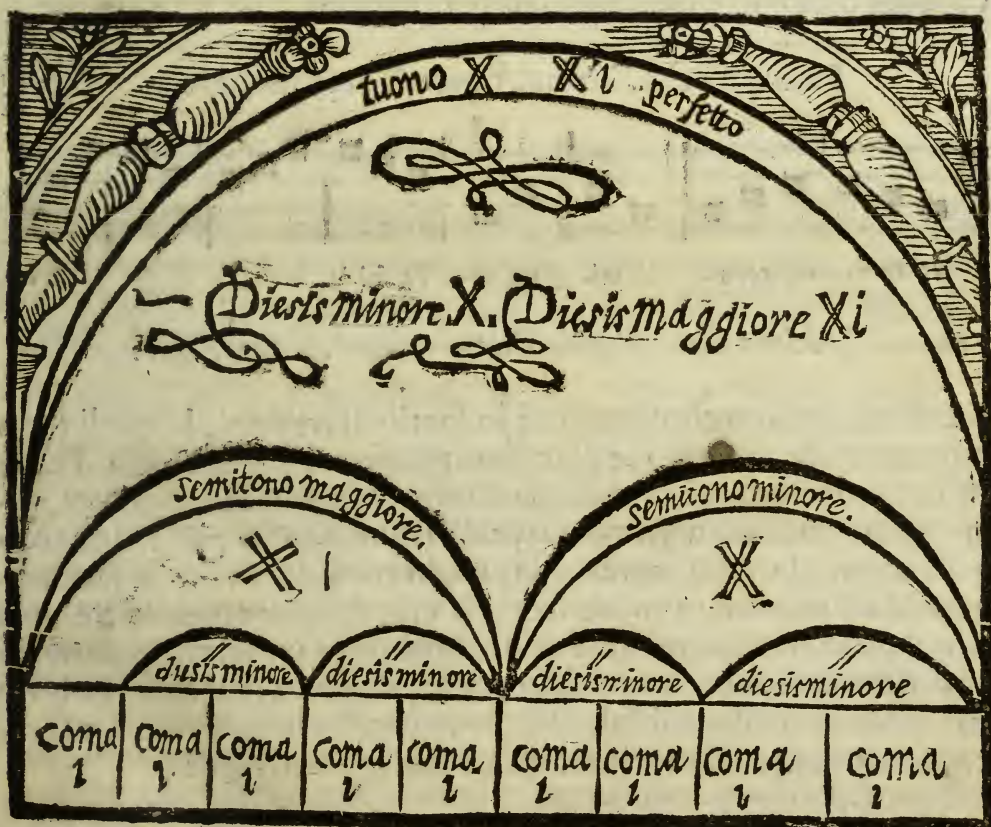 tuono X Xi perfetto
Diesis minore X. Diesis maggiore Xi
semitono maggiore. semitono minore.
X 1 X
diesis minore diesis minore diesis minore diesis minore
coma coma coma coma coma coma coma coma coma
1 1 1 1 1 1 1 1 1